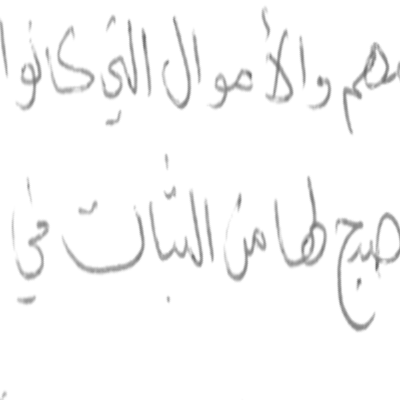 هم والأموال التي كانوا
صبح لها من الثبات في